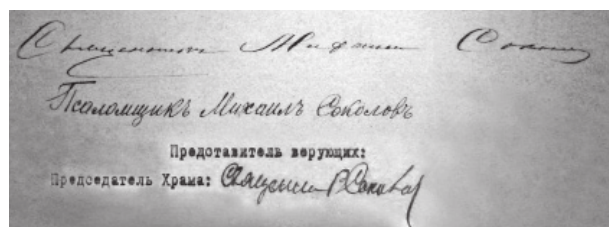 Священникъ
Псаломщикъ Михаилъ Соколовъ
Представитель верующих:
Председатель Храма: Священник В. Соколов